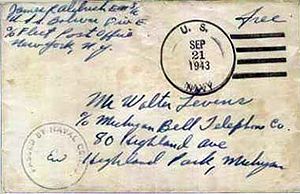 James
Div E
c/o Fleet Post Office
New York, N.Y.
Free
U. S.
SEP
21
1943
NAVY
Mr Walter Levens
c/o Michigan Bell Telephone Co.
80 Highland ave
Highland Park, Michigan
PASSED BY NAVAL